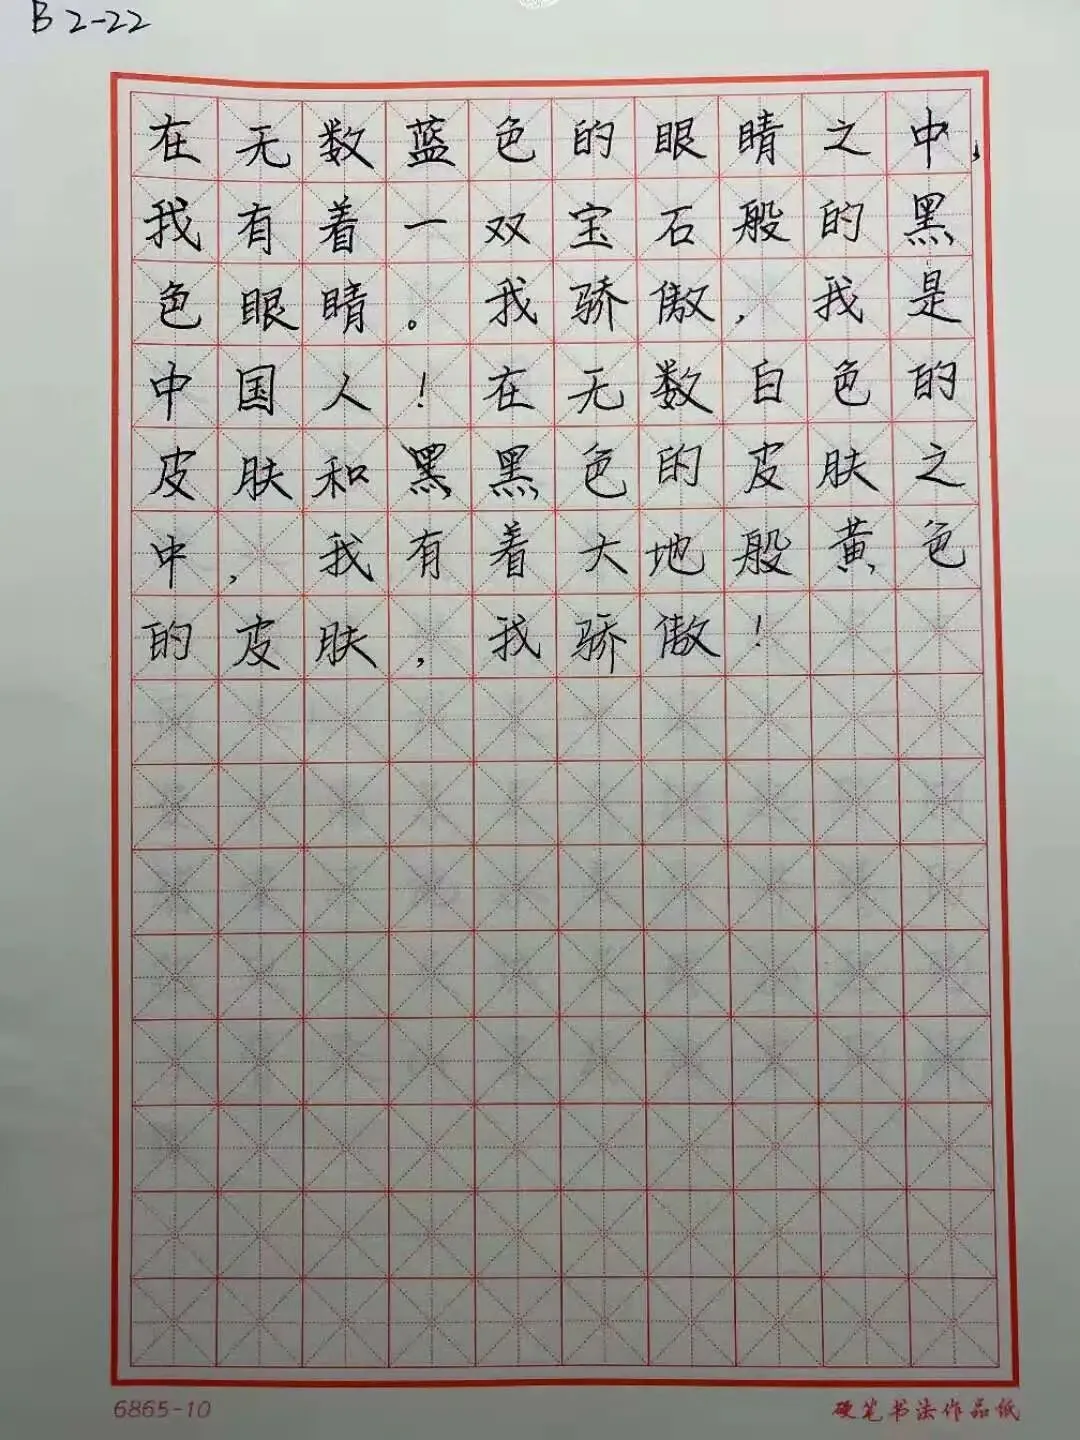 B 2-22
在无数蓝色的眼睛之中,
我有着一双宝石般的黑
色眼睛。我骄傲,我是
中国人!在无数白色的
皮肤和黑黑色的皮肤之
中,我有着大地般黄色
的皮肤,我骄傲!
6865-10 硬笔书法作品纸